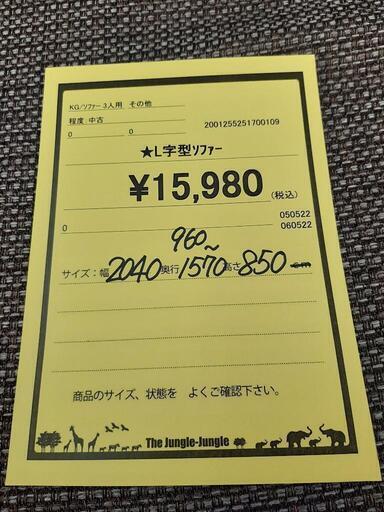 KG/ｿﾌｧｰ 3人用 その他
程度:中古
0 0 2001255251700109
★L字型ｿﾌｧｰ
¥15,980(税込)
050522
0 060522
960~
サイズ:幅2040奥行1570高さ850cm
商品のサイズ、状態を よくご確認下さい。
The Jungle-Jungle